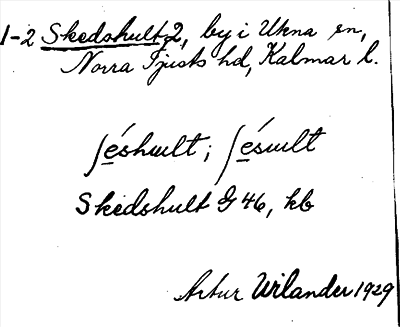 1-2 Skedshult 2, by i Ukna sn,
Norra Tjusts hd, Kalmar l.
ʃéshult; ʃésult
Skedshult G 46, kb
Artur Wilander 1929